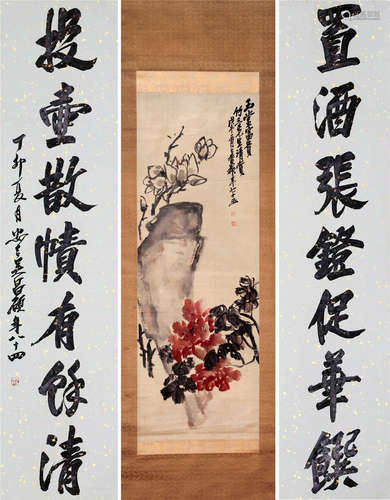 置酒張鐙促華饌
投壺散帙有餘清
丁卯夏月安吉吳昌碩年八十四
玉堂富貴